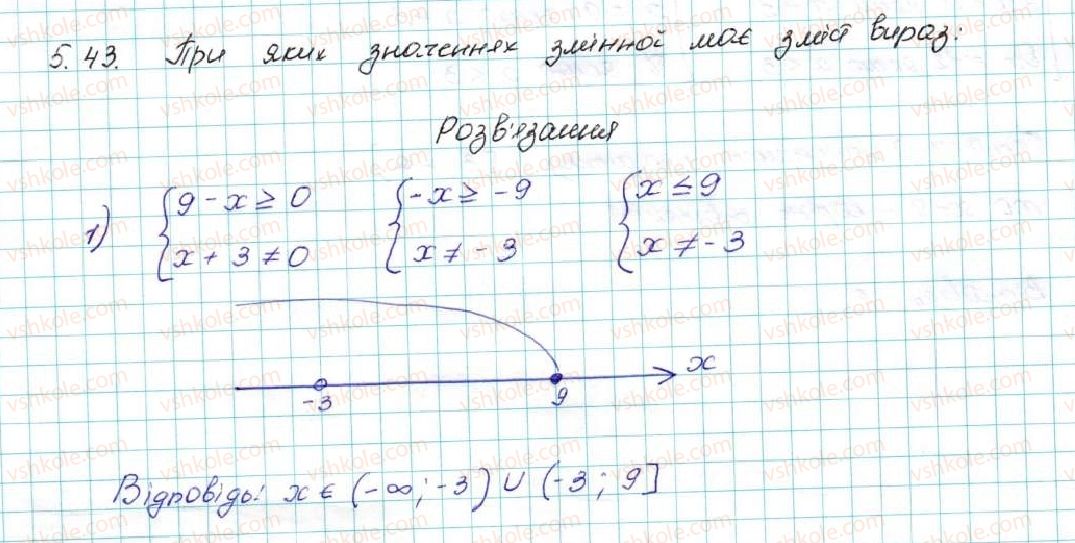 5.43. При яких значеннях змінної має зміст вираз:
Розв'язання
1) { 9 - x ≥ 0 { -x ≥ -9 { x ≤ 9
x + 3 ≠ 0 x ≠ -3 x ≠ -3
x
-3 9
Відповідь: x ∈ (-∞; -3) ∪ (-3; 9]